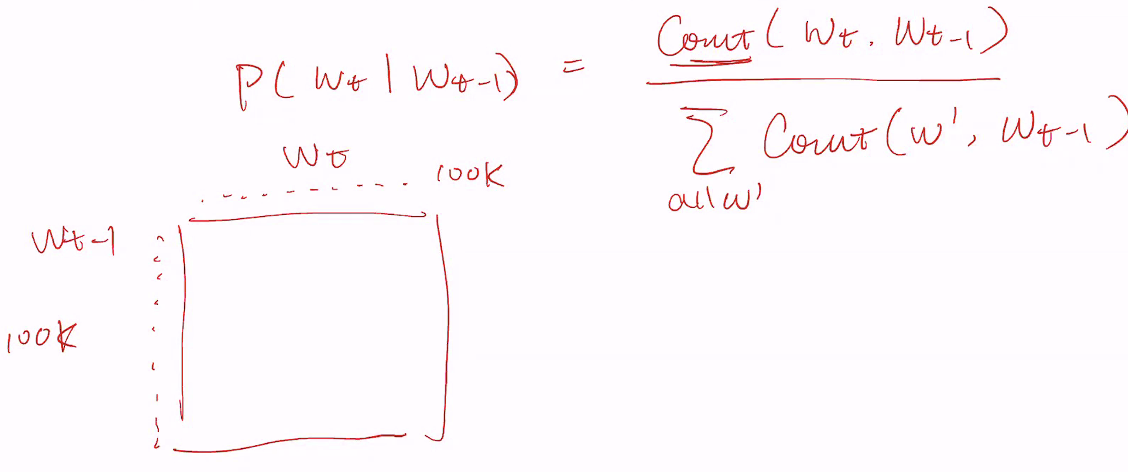 P( Wt | Wt-1) = Count( Wt, Wt-1) / Σ all w' Count(w', Wt-1)
Wt
100K
Wt-1
100K